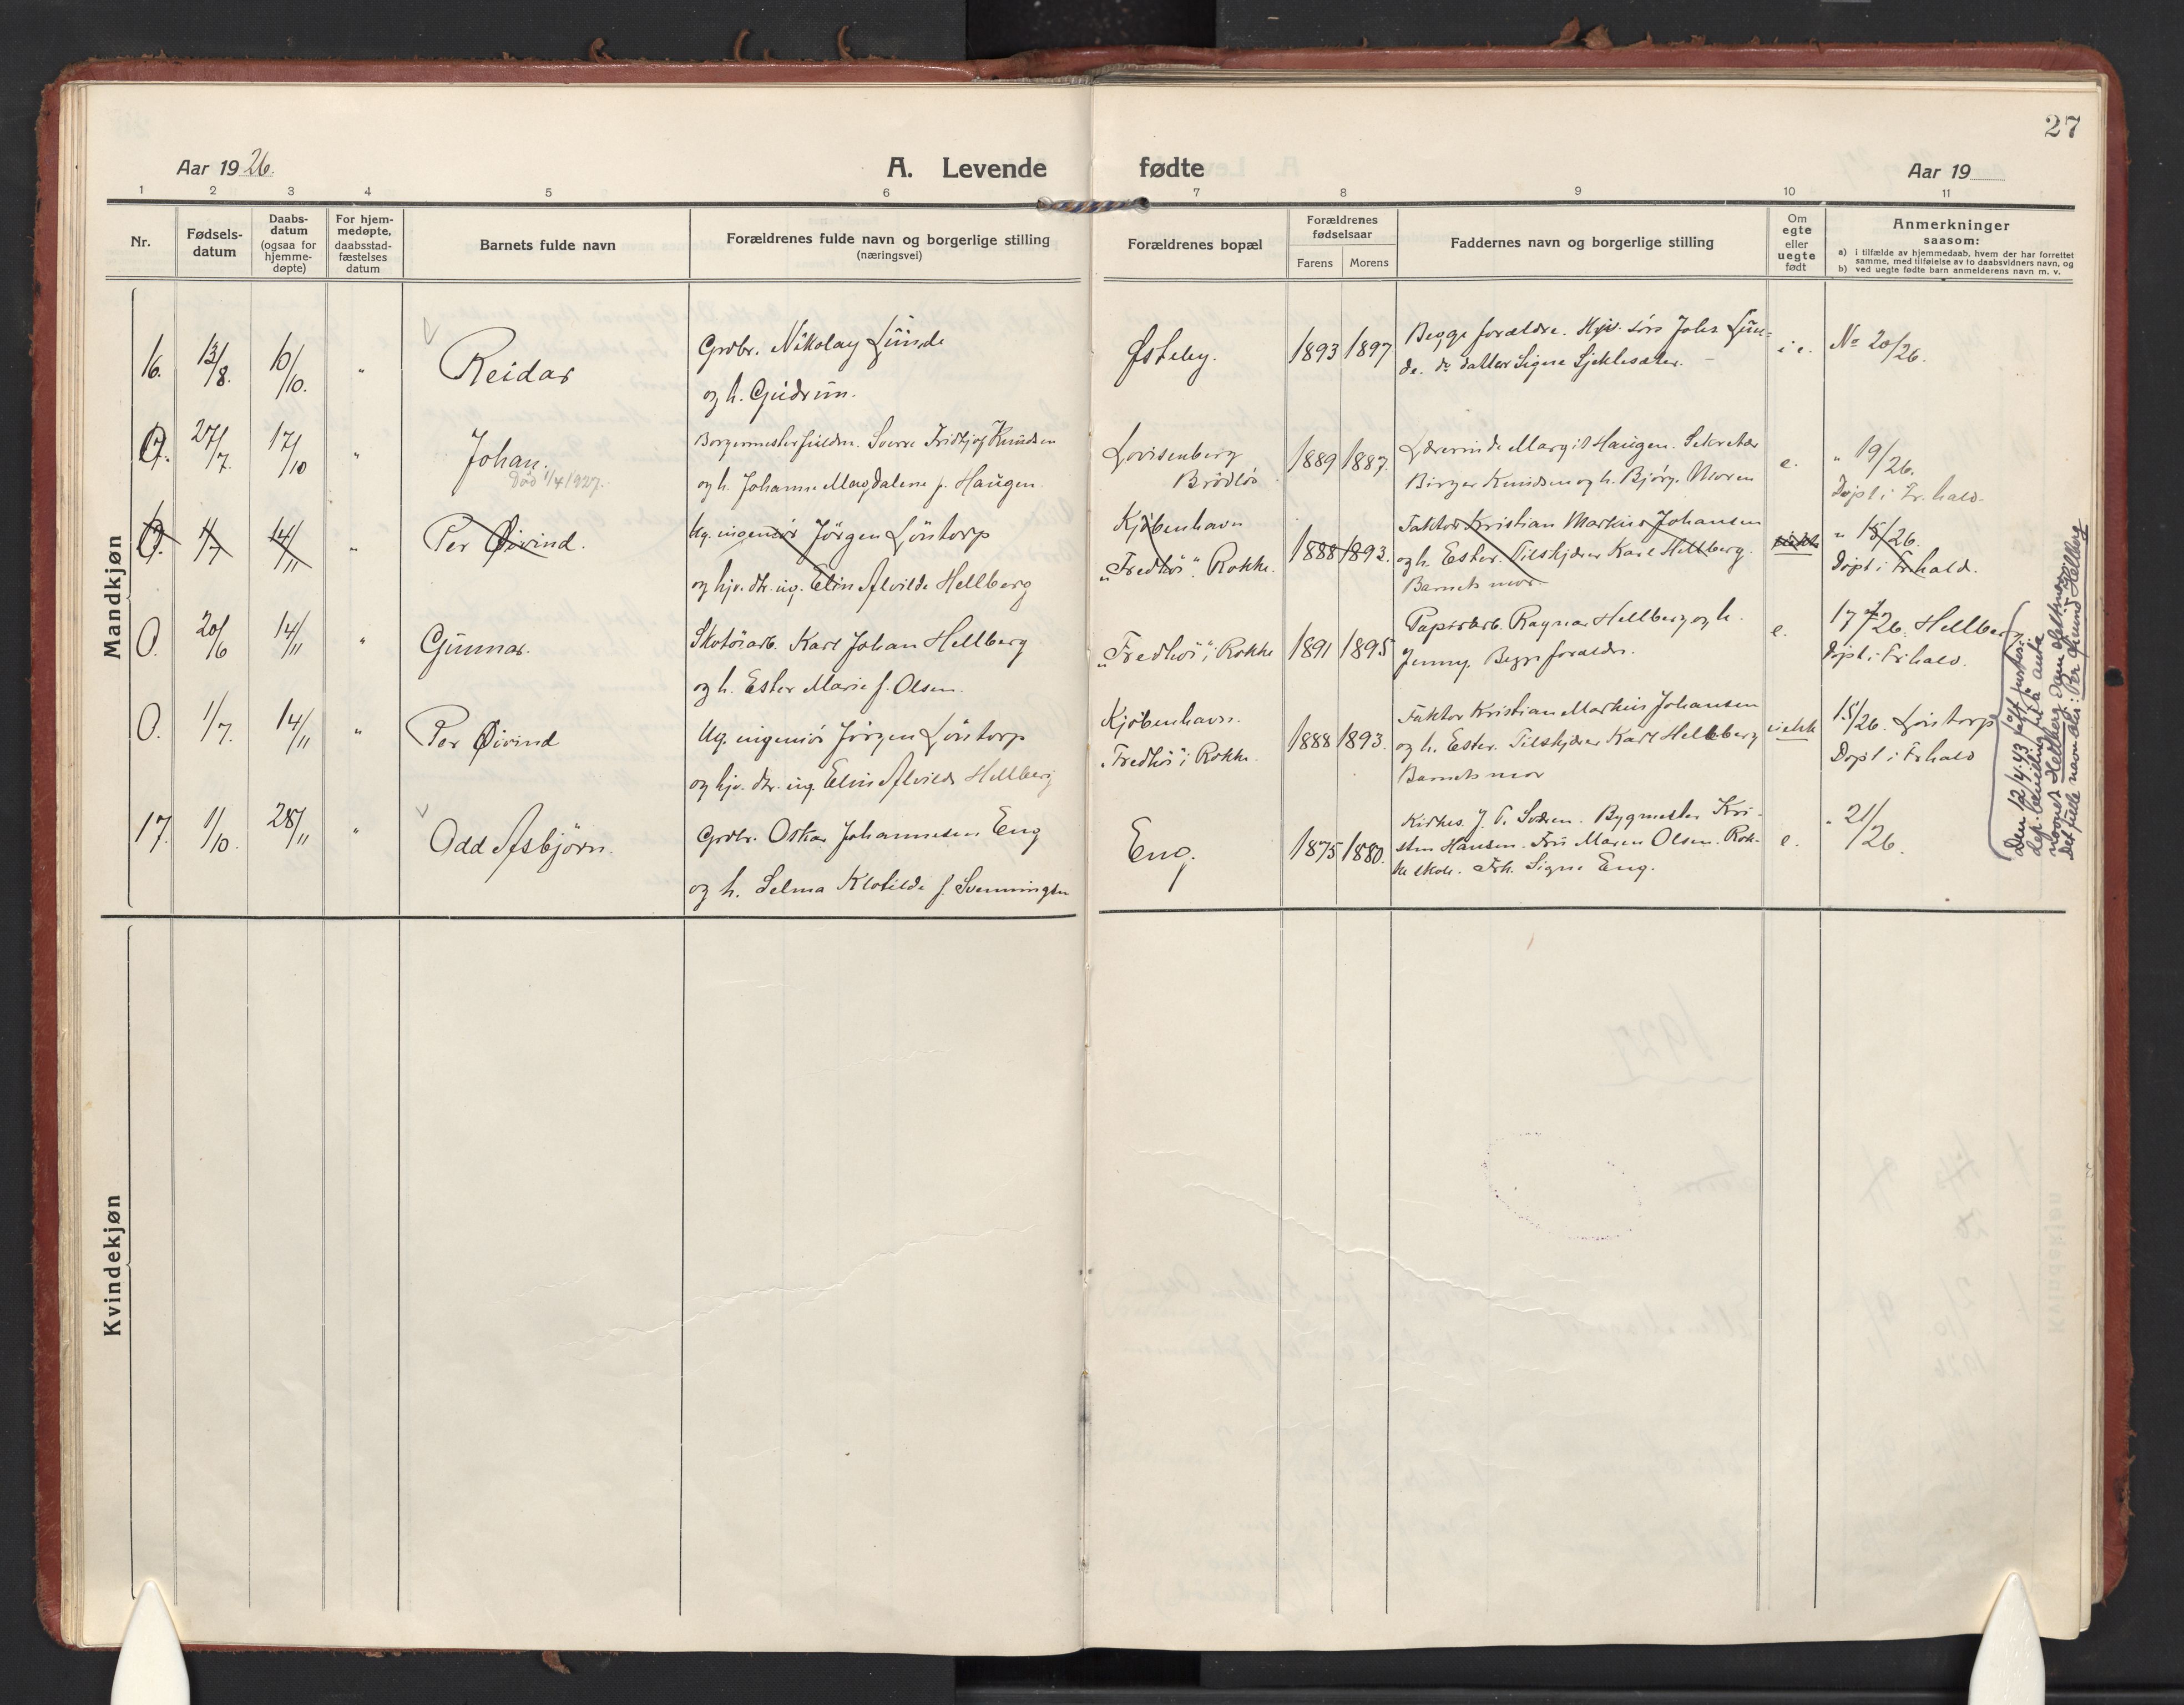 27
Aar 1926.
A. Levende fødte
Aar 19
1 2 3 4 5 6 7 8 9 10 11
Nr.
Fødsels-
datum
Daabs-
datum
(ogsaa for
hjemme-
døpte)
For hjem-
medøpte,
daabsstad-
fæstelses
datum
Barnets fulde navn
Forældrenes fulde navn og borgerlige stilling
(næringsvei)
Forældrenes bopæl
Forældrenes
fødselsaar
Farens Morens
Faddernes navn og borgerlige stilling
Om
egte
eller
uegte
født
Anmerkninger
saasom:
a) i tilfælde av hjemmedaab, hvem der har forrettet
samme, med tilføielse av to daabsvidners navn, og
b) ved uegte fødte barn anmelderens navn m. v.
Mandkjøn
16. 13/8. 10/10. " Reidar
Grdbr. Nikolay Lunde
og h. Gudrun.
Østeby. 1893 1897
Begge forældre. Hjv. søn Johs. Lun-
de. do datter Signe
No 20/26.
0. 27/7. 17/10 " Johan.
Død 1/4 1927.
Borgermesterfuldm. Sverre Fridtjof Knudsen
og h. Johanne Magdalene f. Haugen
Lovisenberg
Brødløs
1889 1887.
Lærerinde Margit Haugen. Sekretær
Birger Knudsen og h. Bjørg. Moren
e.
" 19/26.
Døpt i Fr.hald.
0. 1/7 14/11 " Per Øivind.
Ug. ingeniør Jørgen Löntorp
og hjv. dtr. ug. Elin Alvilde Hellberg
Kjøbenhavn
"Fredbø". Rokke.
1888 1893.
Faktor Kristian Markus Johansen
og h. Ester. Tilskjærer Karl Hellberg.
Barnets mor.
" 15/26.
Døpt i Fr.hald.
0. 20/6 14/11 " Gunnar.
Skotöiarb. Karl Johan Hellberg
og h. Ester Marie f. Olsen.
"Fredbø" i Rokke 1891 1895
Papirarb. Ragnar Hellberg og h.
Jenny. Begge forældre.
e.
17/26. Hellberg
Døpt i Fr.hald.
0. 1/7. 14/11 " Per Øivind
Ug. ingeniör Jörgen Löntorp
og hjv. dtr. ug. Elin Alvilde Hellberg
Kjøbenhavn.
"Fredbø" i Rokke.
1888 1893.
Faktor Kristian Markus Johansen
og h. Ester. Tilskjærer Karl Hellberg
Barnets mor
uekte
15/26. Löntorp
Døpt i Fr.hald
17. 1/10. 28/11 " Odd Asbjørn.
Grdbr. Oskar Johannesen Eng
og h. Selma Klotilde f. Svenningsen
Eng. 1875 1880.
Kirkes. J. O. Svdsen. Bygmester Kri-
sten Hansen. Fru Maren Olsen. Rok-
ke skole. Frk. Signe Eng.
e.
" 21/26.
Den 12/4.43 fått justis-
dep. bevilling til å anta
navnet Hellberg som slektsnavn
Det fulle navn blir: Per Øivind Hellberg
Kvindekjøn